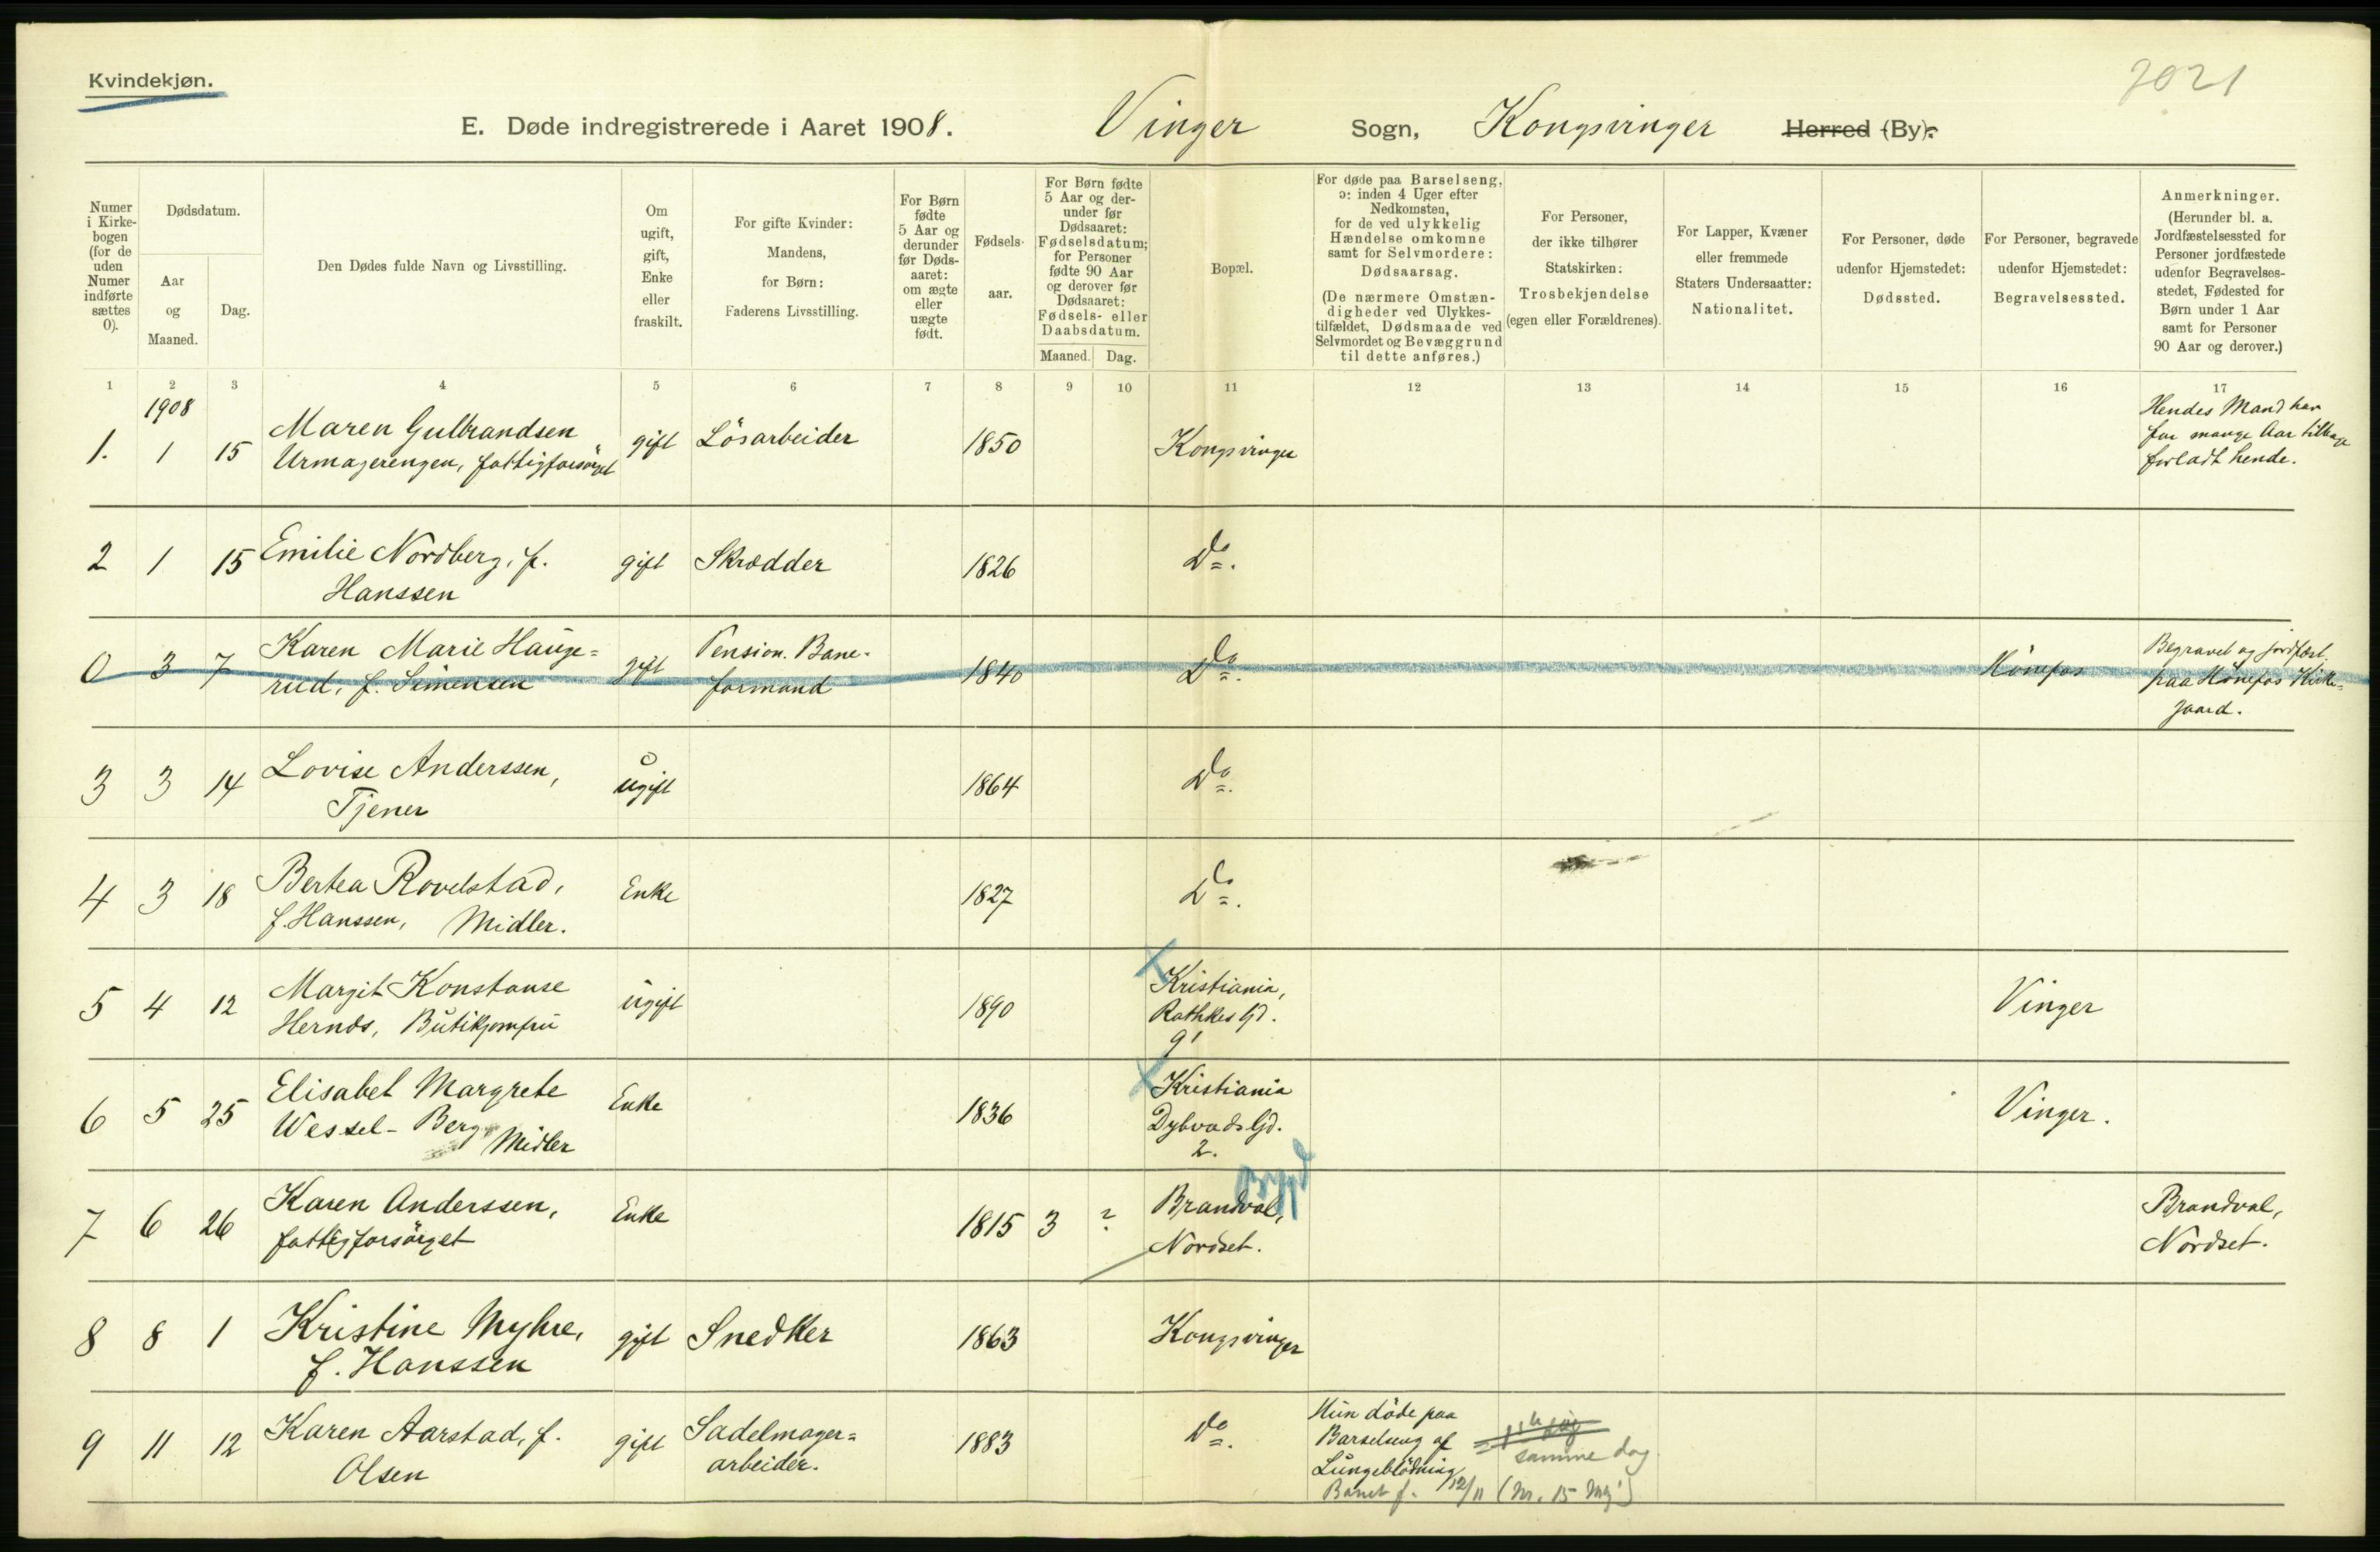 Kvindekjøn.
2021
E. Døde indregistrerede i Aaret 1908. Vinger Sogn, Kongsvinger Herred (By).
Numer i Kirkebogen (for de uden Numer indførte sættes 0).
Dødsdatum.
Aar og Maaned.
Dag.
Den Dødes fulde Navn og Livsstilling.
Om ugift, gift, Enke eller fraskilt.
For gifte Kvinder: Mandens, for Børn: Faderens Livsstilling.
For Børn fødte 5 Aar og derunder før Dødsaaret: om ægte eller uægte født.
Fødselsaar.
For Børn fødte 5 Aar og derunder før Dødsaaret: Fødselsdatum; for Personer fødte 90 Aar og derover før Dødsaaret: Fødsels- eller Daabsdatum.
Maaned. Dag.
Bopæl.
For døde paa Barselseng, ɔ: inden 4 Uger efter Nedkomsten, for de ved ulykkelig Hændelse omkomne samt for Selvmordere: Dødsaarsag.
(De nærmere Omstændigheder ved Ulykkestilfældet, Dødsmaade ved Selvmordet og Bevæggrund til dette anføres.)
For Personer, der ikke tilhører Statskirken: Trosbekjendelse (egen eller Forældrenes).
For Lapper, Kvæner eller fremmede Staters Undersaatter: Nationalitet.
For Personer, døde udenfor Hjemstedet: Dødssted.
For Personer, begravede udenfor Hjemstedet: Begravelsessted.
Anmerkninger.
(Herunder bl. a. Jordfæstelsessted for Personer jordfæstede udenfor Begravelsesstedet, Fødested for Børn under 1 Aar samt for Personer 90 Aar og derover.)
1 2 3 4 5 6 7 8 9 10 11 12 13 14 15 16 17
1908
1. 1 15 Maren Gulbrandsen gift Lösarbeider 1850 Kongsvinger
Urmagerengen, fattigforsörget
Hendes Mand har
for mange Aar tilbage
forladt hende.
2 1 15 Emilie Nordberg, f. gift Skrædder 1826 Do.
Hanssen
0 3 7 Karen Marie Hauge= gift Pension. Bane- 1840 Do. Hönefos
rud, f. Simensen formand
Begravet og jordfæst.
paa Hönefos Kirke=
gaard.
3 3 14 Lovise Anderssen, ugift 1864 Do.
Tjener
4 3 18 Bertea Rovelstad, Enke 1827 Do.
f. Hanssen, Midler.
5 4 12 Margit Konstanse ugift 1890 Kristiania, Vinger
Hernds, Butikjomfru Rathkes Gd.
9'
6 5 25 Elisabet Margrete Enke 1836 Kristiania Vinger.
Wessel-Berg Midler Dybvads Gd.
2.
Bygd
7 6 26 Karen Anderssen, Enke 1815 3 ? Brandval, Brandval,
fattigforsörget Nordset. Nordset.
8 8 1 Kristine Myhre, gift Snedker 1863 Kongsvinger
f. Hanssen
9 11 12 Karen Aarstad, f. gift Sadelmager= 1883 Do.
Olsen arbeider.
Hun döde paa
Barselseng af
Lungeblödning samme dag.
Barnet f. 12/11 (Nr. 15 )